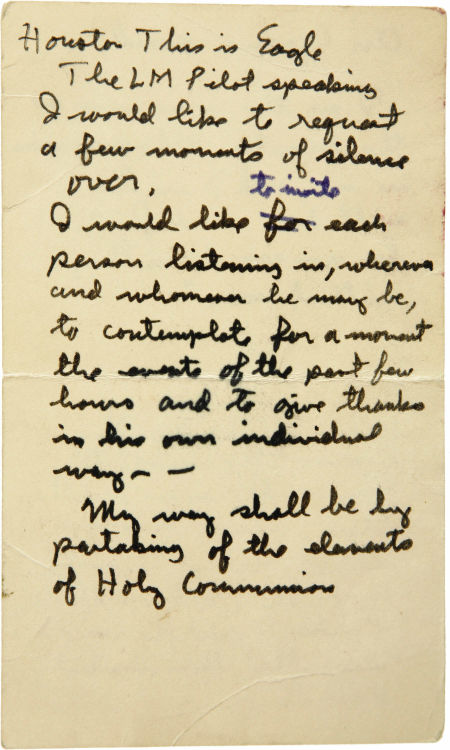 Houston This is Eagle
The LM Pilot speaking
I would like to request
a few moments of silence
over.
to invite
I would like for each
person listening in, wherever
and whomever he may be,
to contemplate for a moment
the events of the past few
hours and to give thanks
in his own individual
way — —
My way shall be by
partaking of the elements
of Holy Communion